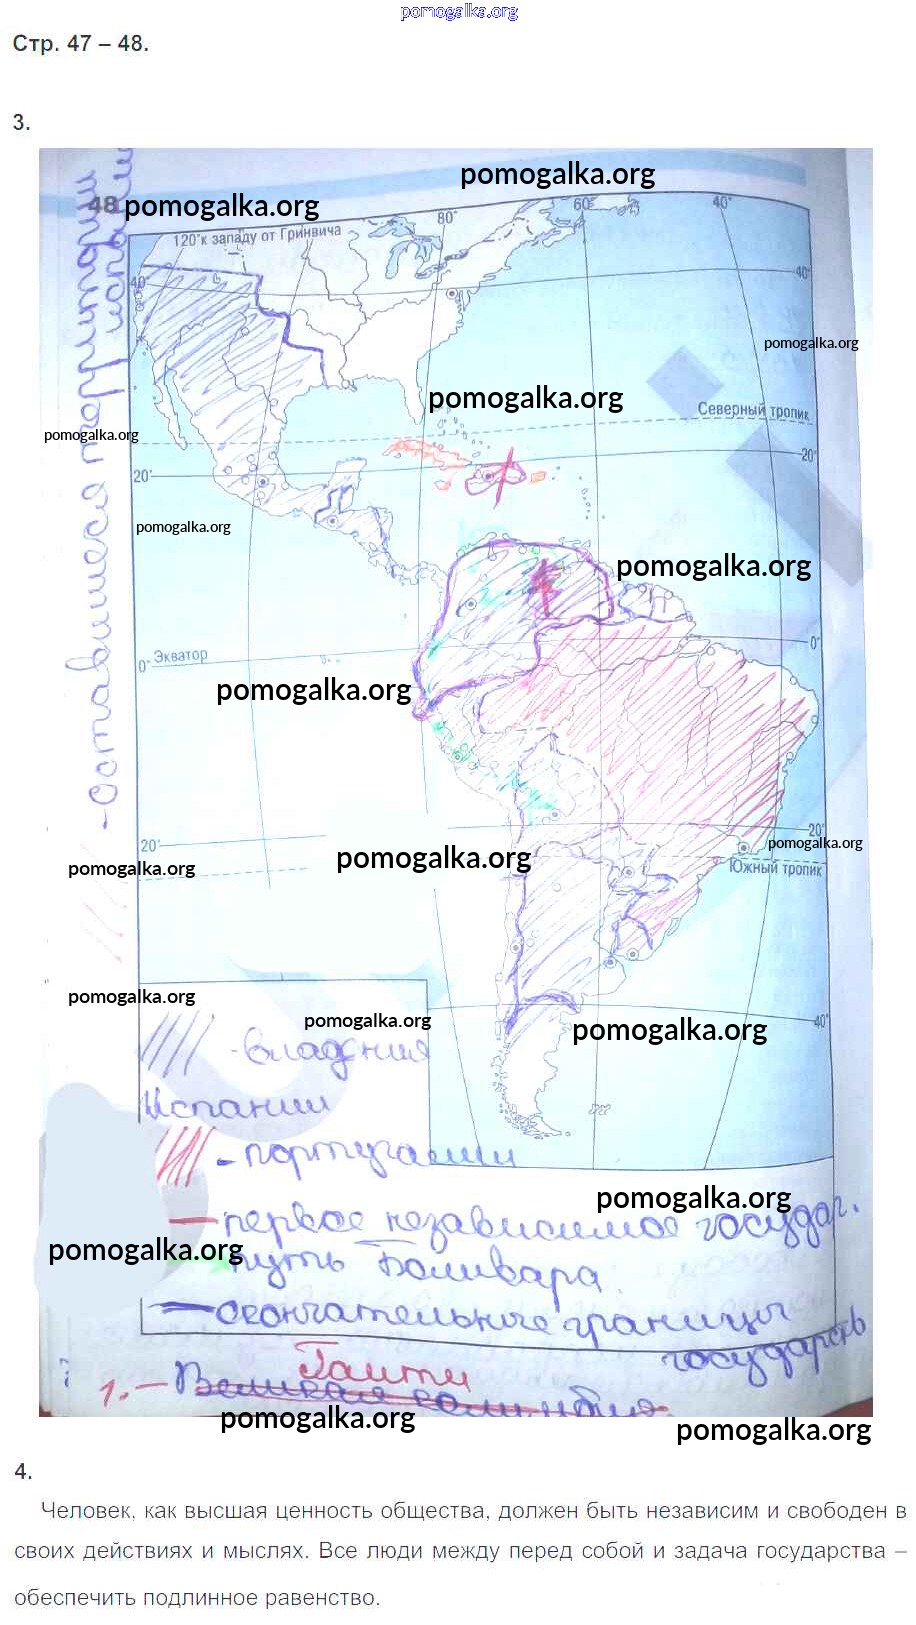 pomogalka.org
Стр. 47 – 48.
3.
48
pomogalka.org
pomogalka.org
120°к западу от Гринвича
80°
60°
40°
40°
40°
pomogalka.org
pomogalka.org
Северный тропик
pomogalka.org
20°
20°
pomogalka.org
pomogalka.org
0° Экватор
0°
pomogalka.org
-Оставшиеся территории
испании
20°
20°
pomogalka.org
pomogalka.org
pomogalka.org
Южный тропик
pomogalka.org
pomogalka.org
40°
pomogalka.org
-владения
Испании
- португалии
pomogalka.org
- первое независимое государ.
pomogalka.org
путь Боливара
- окончательные границы
государств
Гаити
1. - Великая колумбия.
pomogalka.org
pomogalka.org
4.
Человек, как высшая ценность общества, должен быть независим и свободен в
своих действиях и мыслях. Все люди между перед собой и задача государства –
обеспечить подлинное равенство.